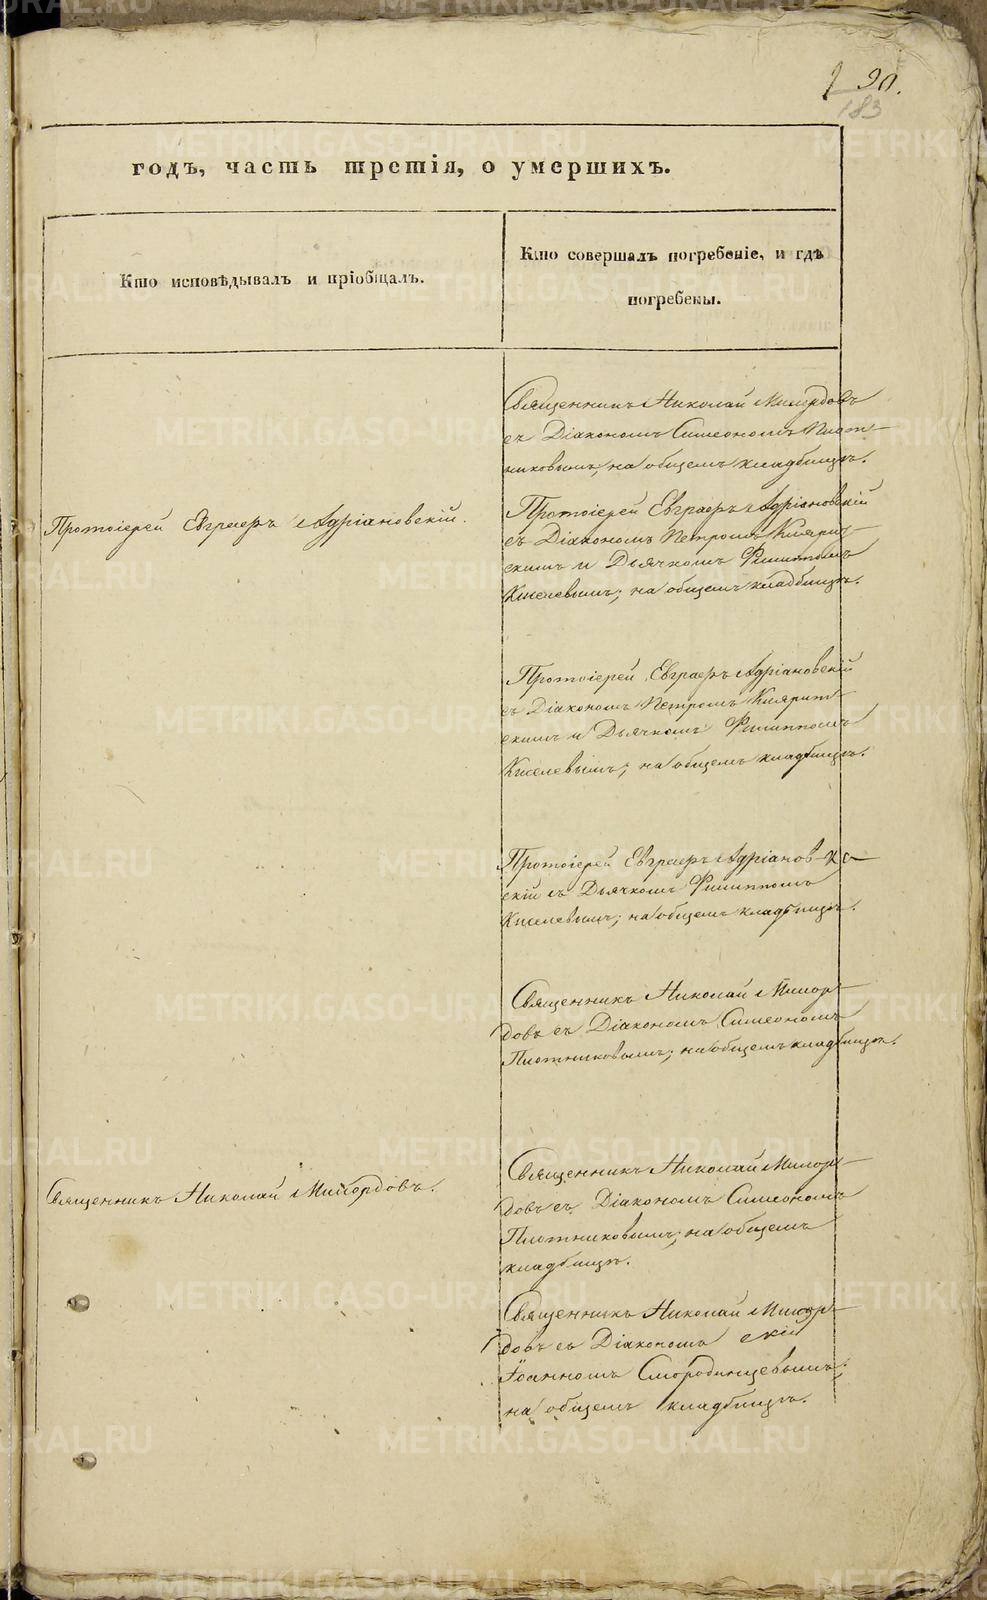 90.
183
годъ, часть третія, о умершихъ.
Кто исповѣдывалъ и пріобщалъ.
Кто совершалъ погребеніе, и гдѣ
погребены.
Священникъ Николай Милордовъ
съ Діакономъ Симеономъ Плот-
никовымъ, на общемъ кладбищѣ.
Протоіерей Евграфъ Адріановскій.
Протоіерей Евграфъ Адріановскій
съ Діакономъ Петромъ
скимъ и Дьячкомъ Филиппомъ
Киселевымъ; на общемъ кладбищѣ.
Протоіерей Евграфъ Адріановскій
съ Діакономъ Петромъ
скимъ и Дьячкомъ Филиппомъ
Киселевымъ; на общемъ кладбищѣ.
Протоіерей Евграфъ Адріанов-
скій съ Дьячкомъ Филиппомъ
Киселевымъ; на общемъ кладбищѣ.
Священникъ Николай Милор-
довъ съ Діакономъ Симеономъ
Плотниковымъ; на общемъ кладбищѣ.
Священникъ Николай Милордовъ.
Священникъ Николай Милор-
довъ съ Діакономъ Симеономъ
Плотниковымъ; на общемъ
кладбищѣ.
Священникъ Николай Милор-
довъ съ Діакономъ
Іоанномъ Смородинцевымъ;
на общемъ кладбищѣ.
METRIKI.GASO-URAL.RU